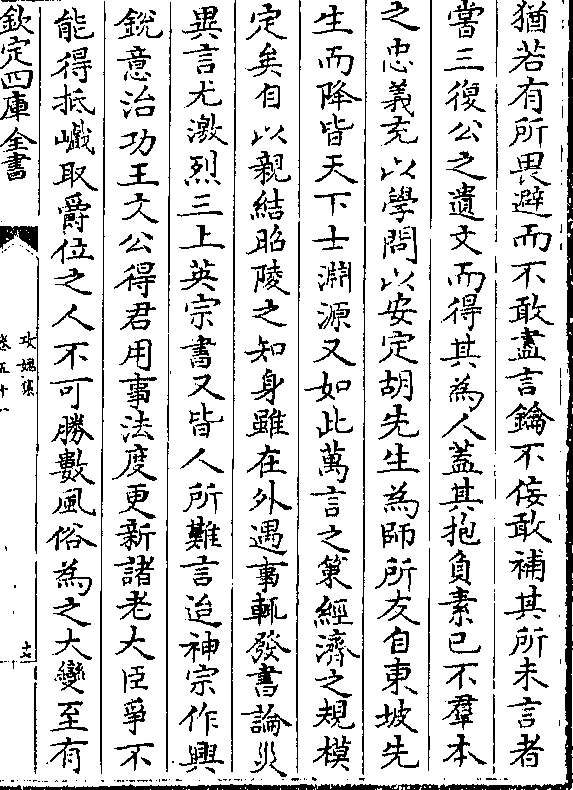 猶若有所畏避而不敢盡言鑰不佞敢補其所未言者
嘗三復公之遺文而得其為人蓋其抱負素已不羣本
之忠義充以學問以安定胡先生為師所友自東坡先
生而降皆天下士淵源又如此萬言之策經濟之規模
定矣自以親結昭陵之知身雖在外遇事輒發書論災
異言尤激烈三上英宗書又皆人所難言迨神宗作興
銳意治功王文公得君用事法度更新諸老大臣爭不
能得抵巇取爵位之人不可勝數風俗為之大變至有
欽定四庫全書
攻媿集
卷五十一